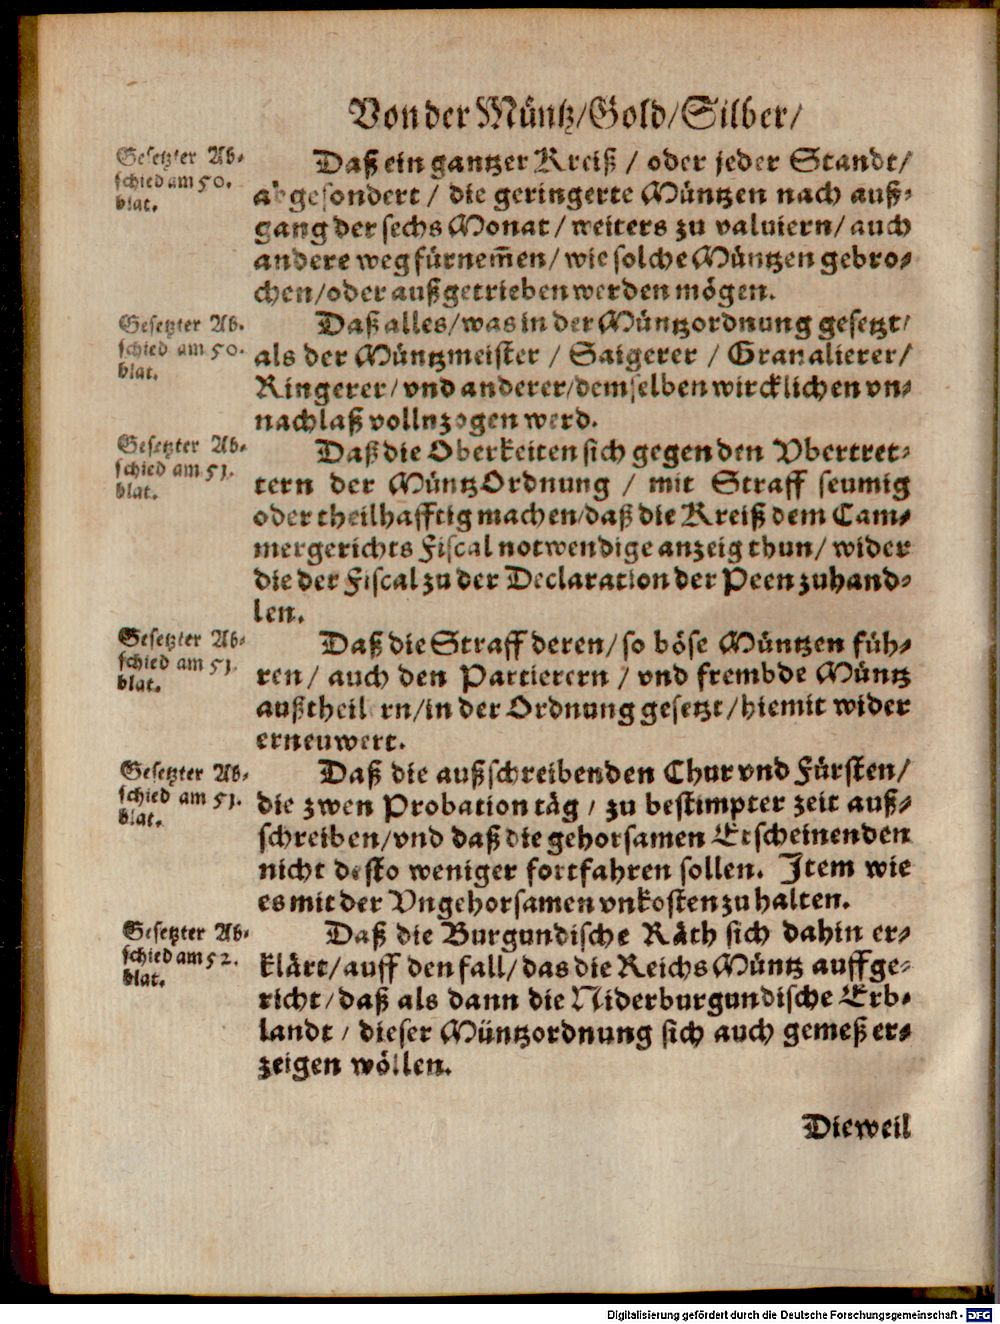 Von der Müntz/Gold/Silber/
Gesetzter Ab-
schied am 50.
blat.
Daß ein gantzer Kreiß / oder jeder Standt/
abgesondert / die geringerte Müntzen nach auß-
gang der sechs Monat/ weiters zu valuiern/ auch
andere weg fürnem̃en/ wie solche Müntzen gebro-
chen/oder außgetrieben werden mögen.
Gesetzter Ab-
schied am 50.
blat.
Daß alles/was in der Müntzordnung gesetzt/
als der Müntzmeister / Saigerer / Granalierer/
Ringerer/ vnd anderer/demselben wircklichen vn-
nachlaß vollnzogen werd.
Gesetzter Ab-
schied am 51.
blat.
Daß die Oberkeiten sich gegen den Vbertret-
tern der MüntzOrdnung / mit Straff seumig
oder theilhafftig machen/daß die Kreiß dem Cam-
mergerichts Fiscal notwendige anzeig thun/ wider
die der Fiscal zu der Declaration der Peen zuhand-
len.
Gesetzter Ab-
schied am 51.
blat.
Daß die Straff deren/ so böse Müntzen füh-
ren/ auch den Partierern / vnd frembde Müntz
außtheilern/in der Ordnung gesetzt/hiemit wider
erneuwert.
Gesetzter Ab-
schied am 51.
blat.
Daß die außschreibenden Chur vnd Fürsten/
die zwen Probation täg / zu bestimpter zeit auß-
schreiben/vnd daß die gehorsamen Erscheinenden
nicht desto weniger fortfahren sollen. Item wie
es mit der Vngehorsamen vnkosten zu halten.
Gesetzter Ab-
schied am 52.
blat.
Daß die Burgundische Räth sich dahin er-
klärt/auff den fall/das die ReichsMüntz auffge-
richt/daß als dann die Niderburgundische Erb-
landt / dieser Müntzordnung sich auch gemeß er-
zeigen wöllen.
Dieweil
Digitalisierung gefördert durch die Deutsche Forschungsgemeinschaft - DFG